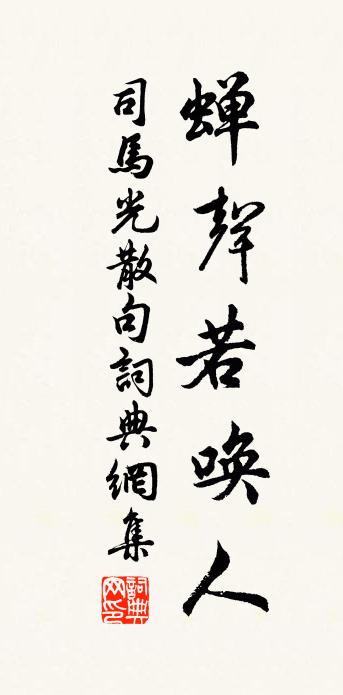 蟬聲若喚人
司馬光散句詞典網集
詞典网印